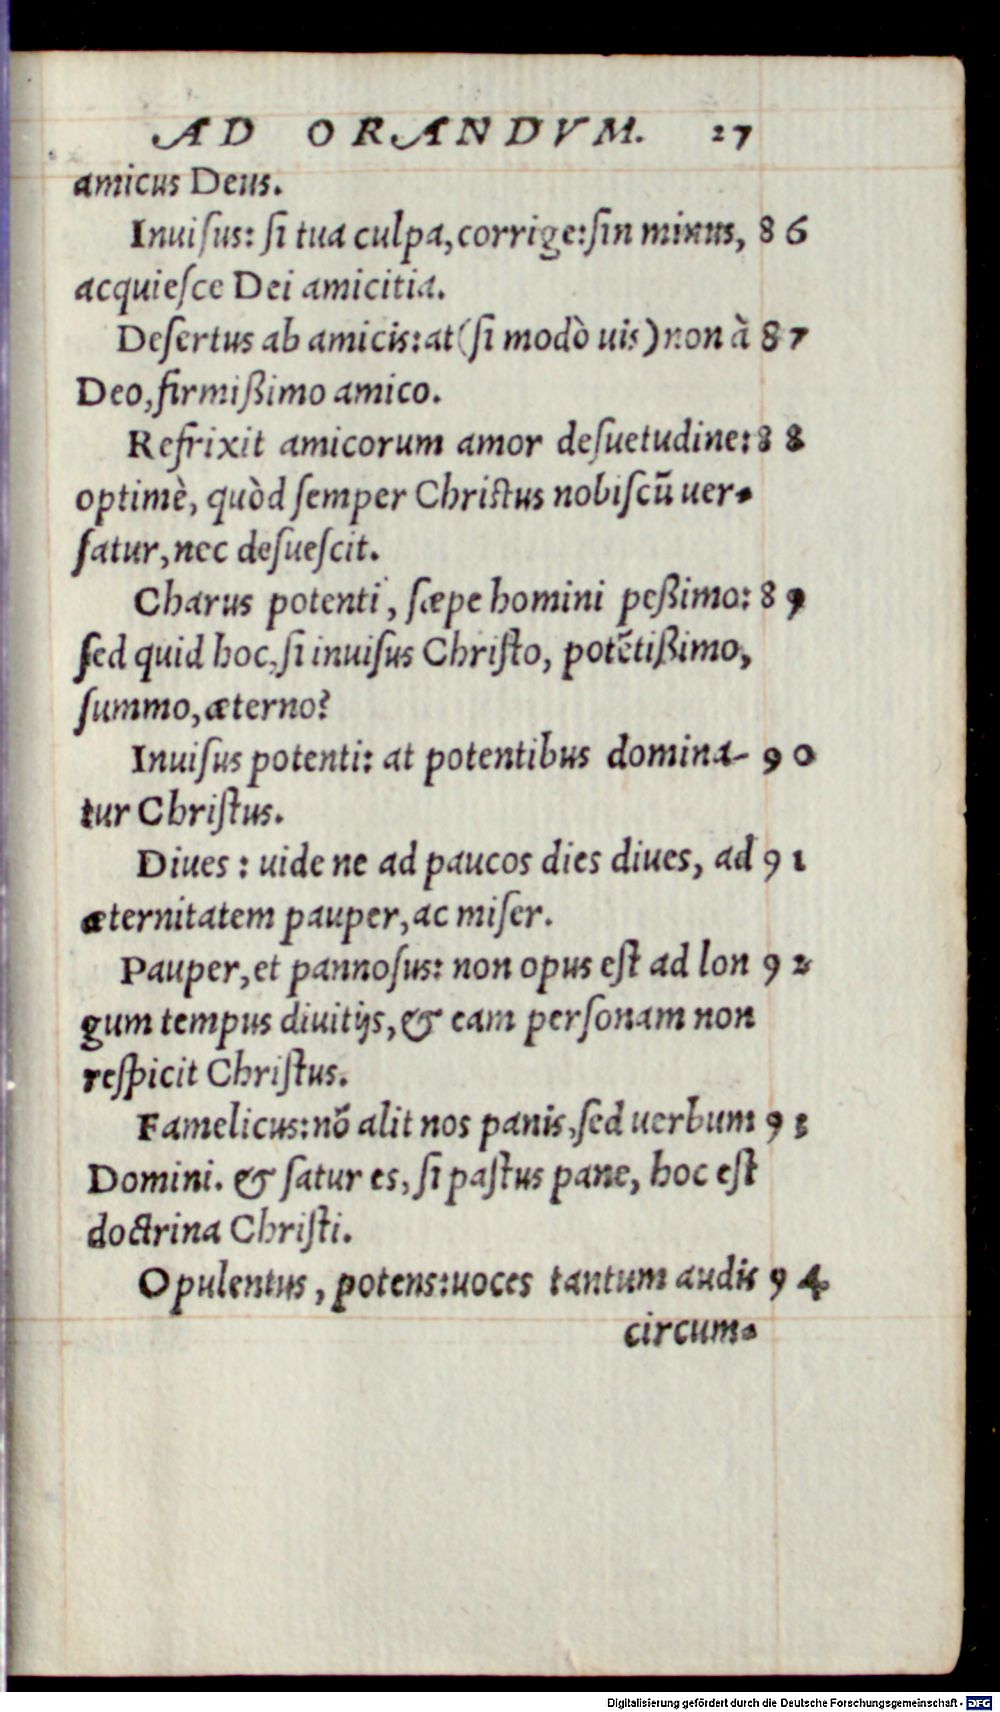 AD ORANDVM. 27
amicus Deus.
Inuiſus: ſi tua culpa, corrige: ſin minus, 86
acquieſce Dei amicitia.
Deſertus ab amicis: at (ſi modò uis) non à 87
Deo, firmißimo amico.
Refrixit amicorum amor deſuetudine: 88
optimè, quòd ſemper Chriſtus nobiſcũ uer-
ſatur, nec deſueſcit.
Charus potenti, ſæpe homini peßimo: 89
ſed quid hoc, ſi inuiſus Chriſto, potẽtißimo,
ſummo, æterno?
Inuiſus potenti: at potentibus domina- 90
tur Chriſtus.
Diues: uide ne ad paucos dies diues, ad 91
æternitatem pauper, ac miſer.
Pauper, et pannoſus: non opus eſt ad lon 92
gum tempus diuitijs, & eam perſonam non
reſpicit Chriſtus.
Famelicus: nõ alit nos panis, ſed uerbum 93
Domini. & ſatur es, ſi paſtus pane, hoc eſt
doctrina Chriſti.
Opulentus, potens: uoces tantum audis 94
circum-
Digitalisierung gefördert durch die Deutsche Forschungsgemeinschaft - DFG